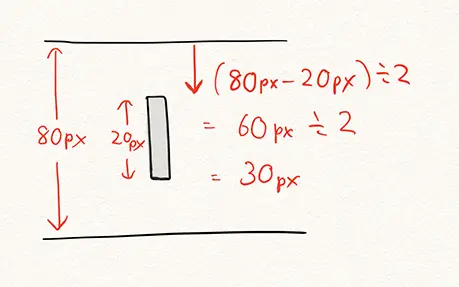 (80px-20px)÷2
80px
20px
= 60px ÷ 2
= 30px